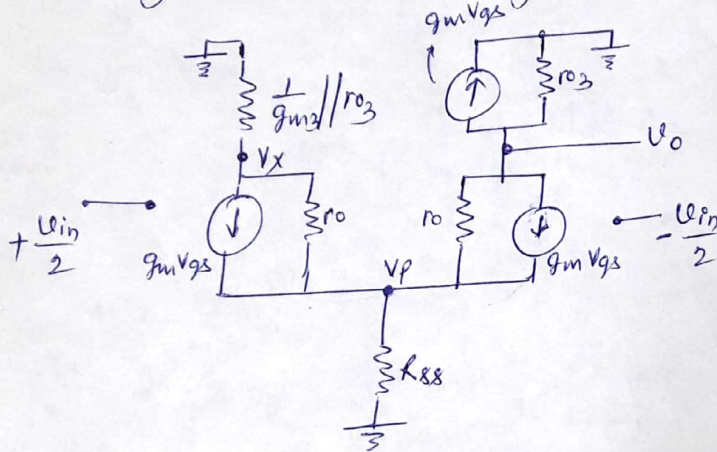 gmVgs
1/gm3 // ro3
ro3
Vx
Vo
ro
ro
+ Vin/2
gmVgs
Vp
gmVgs
- Vin/2
RSS